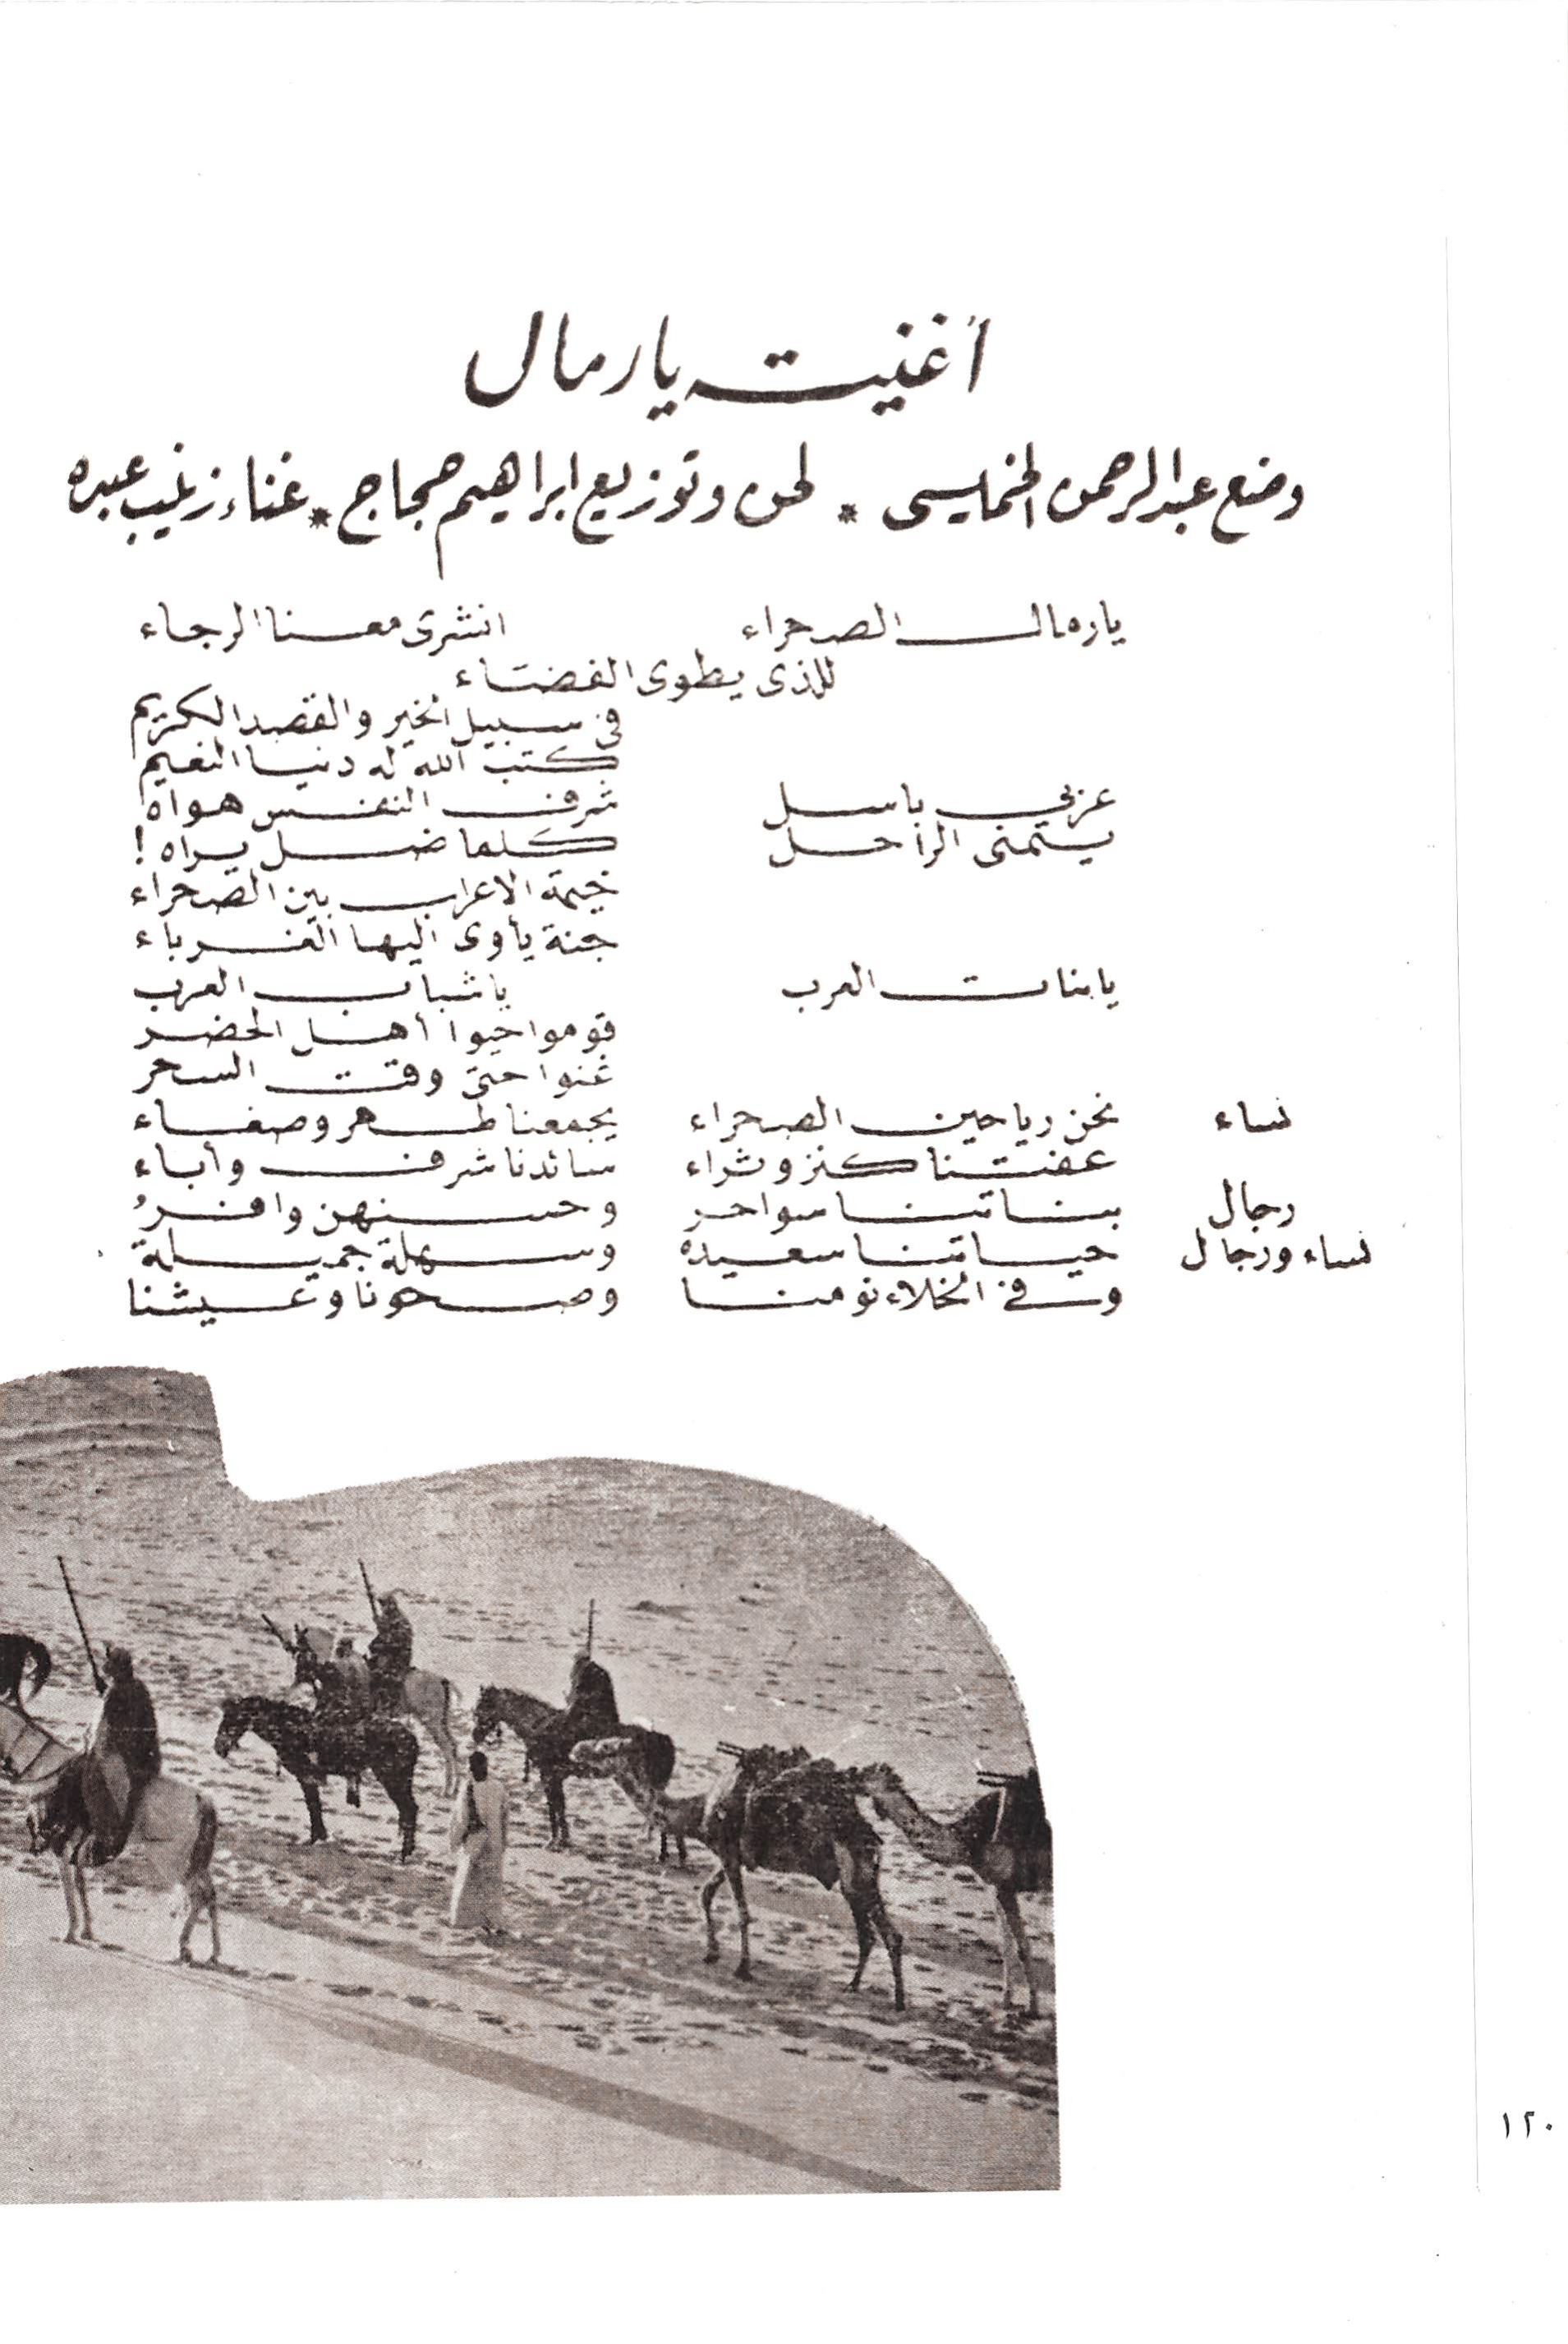 أغنية يا رمال
وضع عبد الرحمن الخميسى * لحن وتوزيع ابراهيم حجاج * غناء زينب عبده
يا رمال الصحراء انشرى معنا الرجاء
للذى يطوى الفضاء
فى سبيل الخير والقصد الكريم
كتب الله له دنيا النعيم
عربي باسل شرف النفس هواه
يتمنى الراحل كلما ضل يراه !
خيمة الاعراب بين الصحراء
جنة يأوى اليها الغرباء
يا بنات العرب يا شباب العرب
قوموا حيوا أهل الحضر
غنوا حتى وقت السحر
نساء نحن رياحين الصحراء يجمعنا طهر وصفاء
عفتنا كنز وثراء سائدنا شرف وأباء
رجال بناتنا سواحر وحسنهن وافرُ
نساء ورجال حياتنا سعيده وسهلة جميلة
وفى الخلاء نومنا وصحونا وعيشنا
١٢٠